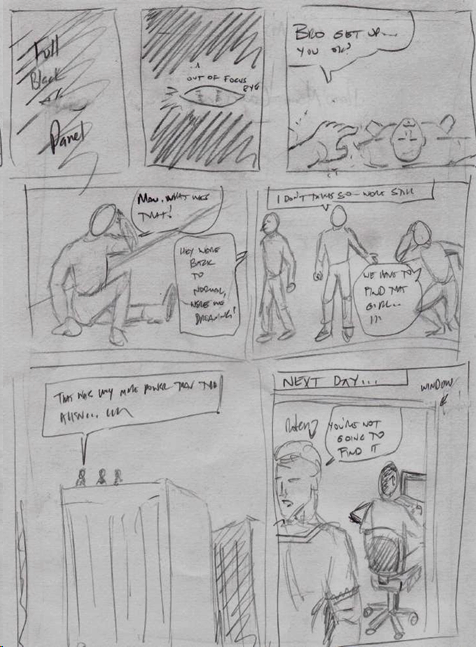 Full
Black
Panel
OUT OF FOCUS
EYE
BRO GET UP...
YOU OK?
MAN, WHAT WAS
THAT!
HEY WE'RE
BACK
TO
NORMAL,
WERE WE
DREAMING?
I DON'T THINK SO- WE'RE STILL
WE HAVE TO
FIND THAT
GIRL...
THAT WAS WAY MORE POWER THEN THE
NEXT DAY...
WINDOW
YOU'RE NOT
GOING TO
FIND IT